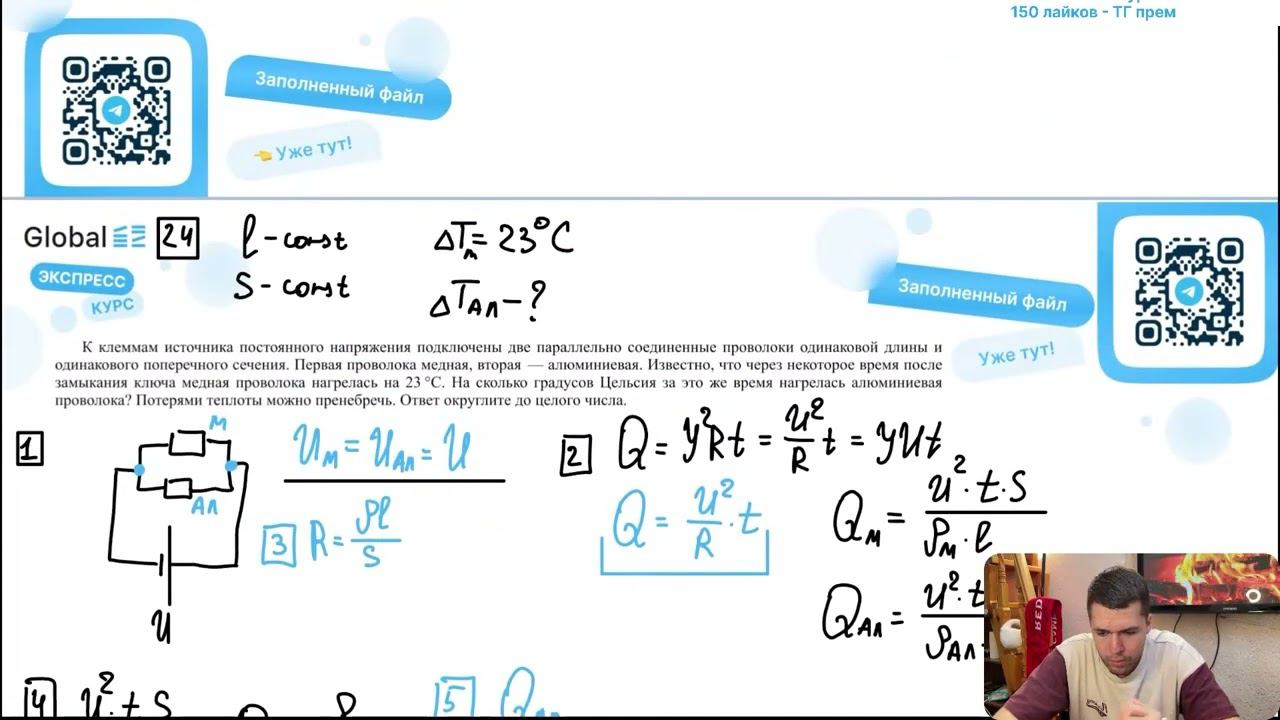 150 лайков - ТГ прем
Заполненный файл
👈 Уже тут!
Global ЕГЭ
ЭКСПРЕСС
КУРС
24
l - const
ΔTм = 23°C
S - const
ΔTАл - ?
Заполненный файл
Уже тут!
К клеммам источника постоянного напряжения подключены две параллельно соединенные проволоки одинаковой длины и
одинакового поперечного сечения. Первая проволока медная, вторая — алюминиевая. Известно, что через некоторое время после
замыкания ключа медная проволока нагрелась на 23 °C. На сколько градусов Цельсия за это же время нагрелась алюминиевая
проволока? Потерями теплоты можно пренебречь. Ответ округлите до целого числа.
1
М
Ал
U
Uм = UАл = U
3 R = ρl/S
2 Q = У²Rt = U²/R t = УUt
Q = U²/R · t
Qм = U²·t·S / ρм·l
QАл = U²·t / ρАл
RED
4 U²·t S
5 QАл